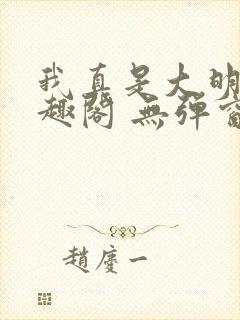 我真是大明
趣閣 無彈窗
趙慶一